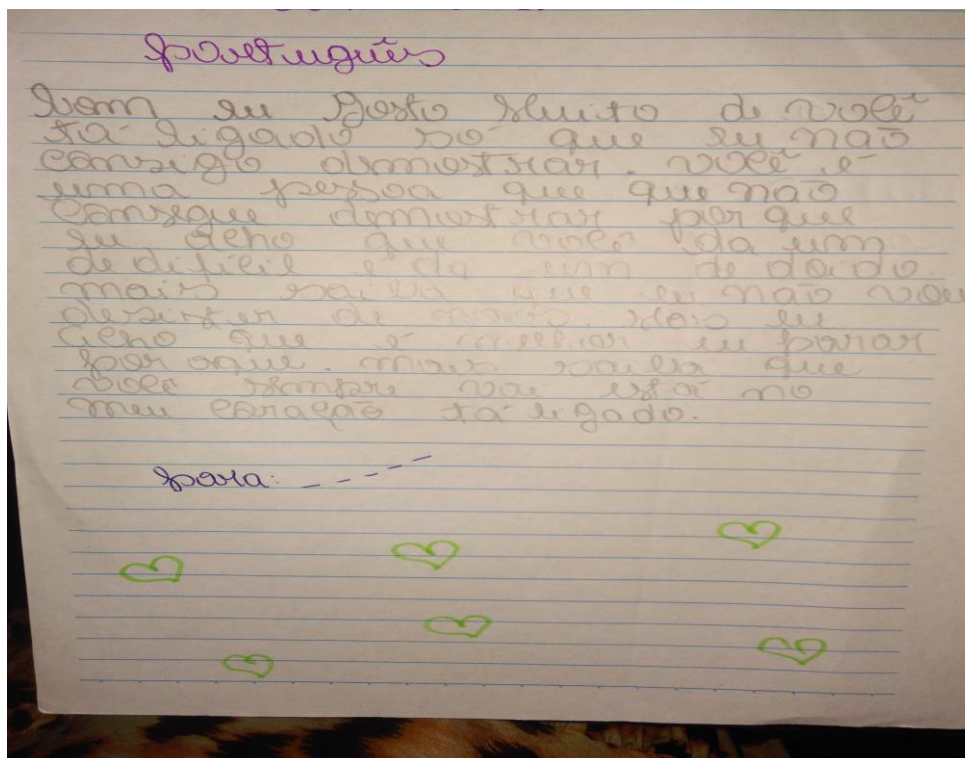 português
bom eu gosto muito de você
tá ligado só que eu não
consigo demostrar. você é
uma pessoa que que não
consegue demostrar por que
eu acho que você da um
de dificil e da um de doido.
mais saiba que eu não vou
desistir de
acho que é melhor eu parar
por aque. mais saiba que
você sempre vai está no
meu coração tá ligado.
para: